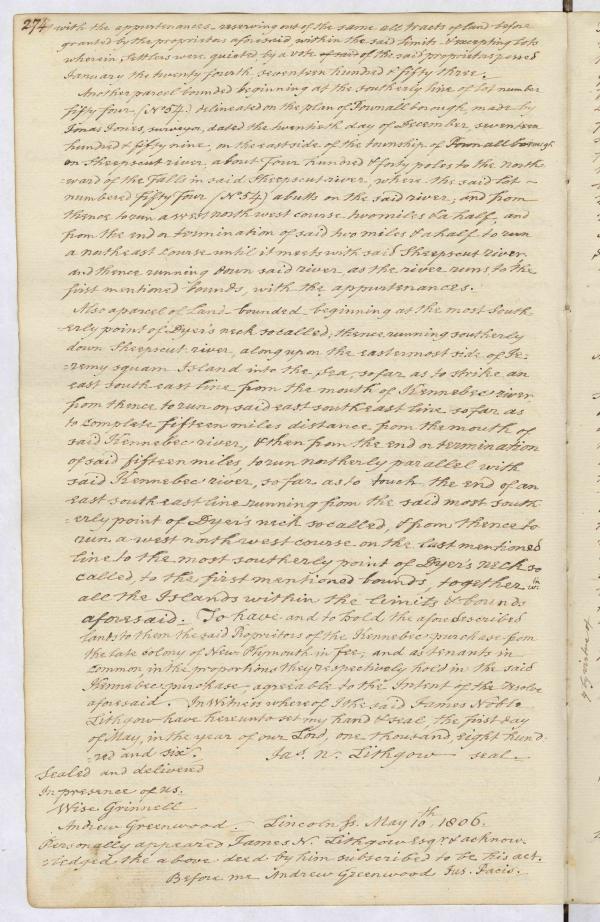 274 with the appurtenances, reserving out of the same all tracts of land before
granted by the proprietors aforesaid within the said limits & excepting lots
wherein settlers were quieted by a vote of said of the said proprietors passed
January the twenty fourth, seventeen hundred & fifty three.
Another parcel bounded beginning at the southerly line of lot number
fifty four (No 54.) delineated on the plan of Pownallborough, made by
Jonas Jones, surveyor, dated the twentieth day of December, seventeen
hundred & fifty nine, on the east side of the township of Pownallborough
on Sheepscut river, about Four hundred & forty poles to the north
=ward of the Falls in said Sheepscut river, where the said lot
numbered Fifty Four (No 54) abutts on the said river; and from
thence to run a west north west course two miles & a half, and
from the end or termination of said two miles & a half to run
a north east course until it meets with said Sheepscut river
and thence running down said river as the river runs to the
first mentioned bounds, with the appurtenances.
Also a parcel of Land bounded beginning at the most South
=erly point of Dyer's neck so called, thence running southerly
down Sheepscut river, along upon the eastermost side of Je-
=remy squam Island into the Sea, so far as to strike an
east south east line from the mouth of Kennebec river
from thence to run on said east south east line so far as
to complete fifteen miles distance from the mouth of
said Kennebec river, & then from the end or termination
of said fifteen miles, to run northerly parallel with
said Kennebec river, so far as to touch the end of an
east south east line running from the said most south
=erly point of Dyer's neck so called, & from thence to
run a west north west course on the last mentioned
line to the most southerly point of Dyer's neck so
called, to the first mentioned bounds, together wth
all the Islands within the limits & bounds
aforesaid. To have and to hold the aforedescribed
lands to them the said Propritors of the Kennebec purchase from
the late colony of New Plymouth in fee, and as tenants in
common in the proportions they respectively hold in the said
Kennebec purchase agreeable to the Intent of the resolve
aforesaid. In Witness whereof I the said James Noble
Lithgow have hereunto set my hand & seal, the first day
of May, in the year of our Lord, one thousand, eight hund-
=red and six. Jas. N. Lithgow seal.
Sealed and delivered
In presence of us.
Wise Grinnell
Andrew Greenwood. Lincoln Ss. May 10th 1806.
Personally appeared James N. Lithgow Esqr. & acknow-
=ledged the above deed by him subscribed to be his act.
Before me Andrew Greenwood Jus. Pacis.
g by virtue of